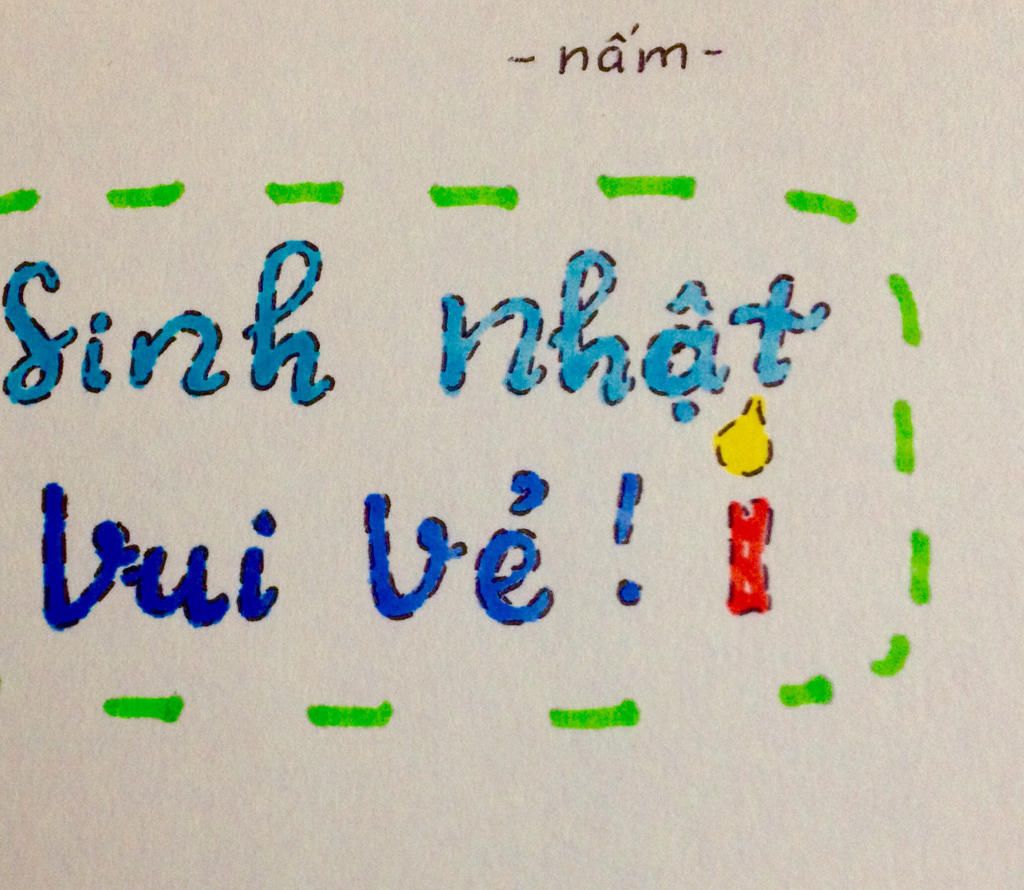 - nấm -
Sinh nhật
vui vẻ !